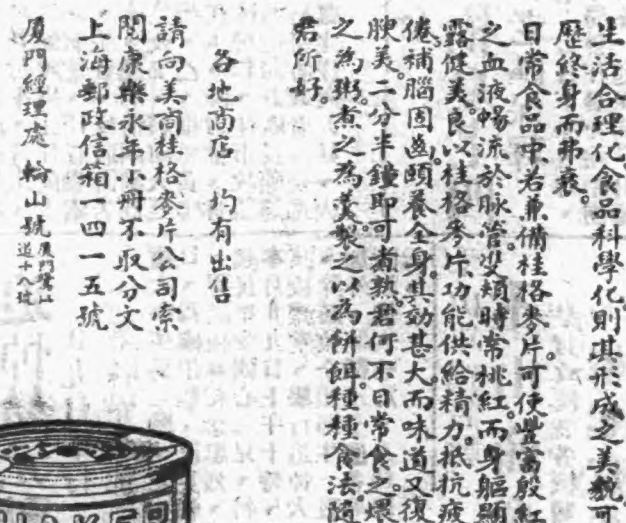 生活合理化食品科學化則其形成之美貌可
歷終身而弗衰。
日常食品中若兼備桂格麥片可使豐富殷紅
之血液暢流於脉管雙頰時常桃紅。而身軀顯
露健美。良以桂格麥片功能供給精力。抵抗疲
倦補腦固齒。頤養全身其効甚大。而味道又復
腴美。二分半鐘即可煮熟。君何不日常食之。煨
之為粥。煮之為羹。製之以為餅餌種種食法。隨
君所好。
各地商店　均有出售
請向美商桂格麥片公司索
閱康樂永年小冊不取分文
上海郵政信箱一四一五號
厦門經理處 輪山號
道十八號